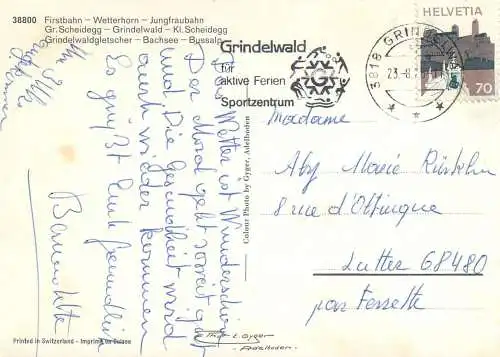 38800 Firstbahn – Wetterhorn – Jungfraubahn
Gr.Scheidegg – Grindelwald – Kl.Scheidegg
Grindelwaldgletscher – Bachsee – Bussalp
Wetter ist Wunderschön
Der Mord geht vorreit gut
und Die Gesundheit wird
auch wider kommen
Es grüßt Euch freundlich
Printed in Switzerland - Imprimé en Suisse
Colour Photo by Gyger, Adelboden
Grindelwald
für
aktive Ferien
Sportzentrum
3818 GRINDELWALD
23.-8.
HELVETIA
70
Madame
Aby Marie
8 rue d'Oltingue
Lutter 68480
par Ferrette
Gyger
Adelboden